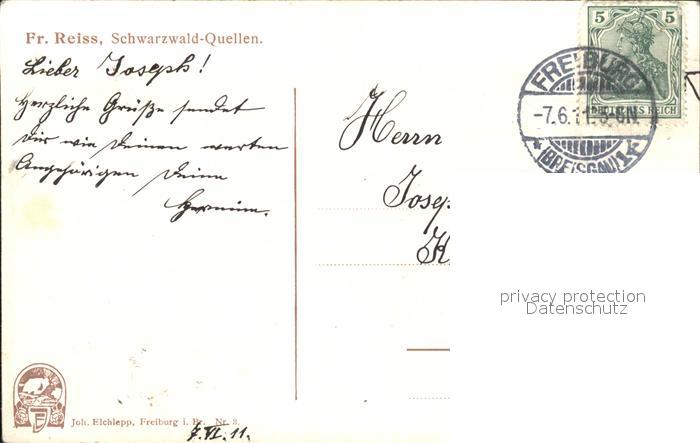 Fr. Reiss, Schwarzwald-Quellen.
Lieber Joseph!
Herzliche Grüße sendet
Dir wie Deinen werten
Angehörigen Deine
Hermine.
5 5
DEUTSCHES REICH
FREIBURG
-7.6.11.5-6N.
* (BREISGAU) 1 *
Herrn
Josep
K
privacy protection
Datenschutz
Joh. Elchlepp, Freiburg i. Br. Nr. 3.
7.VI.11.